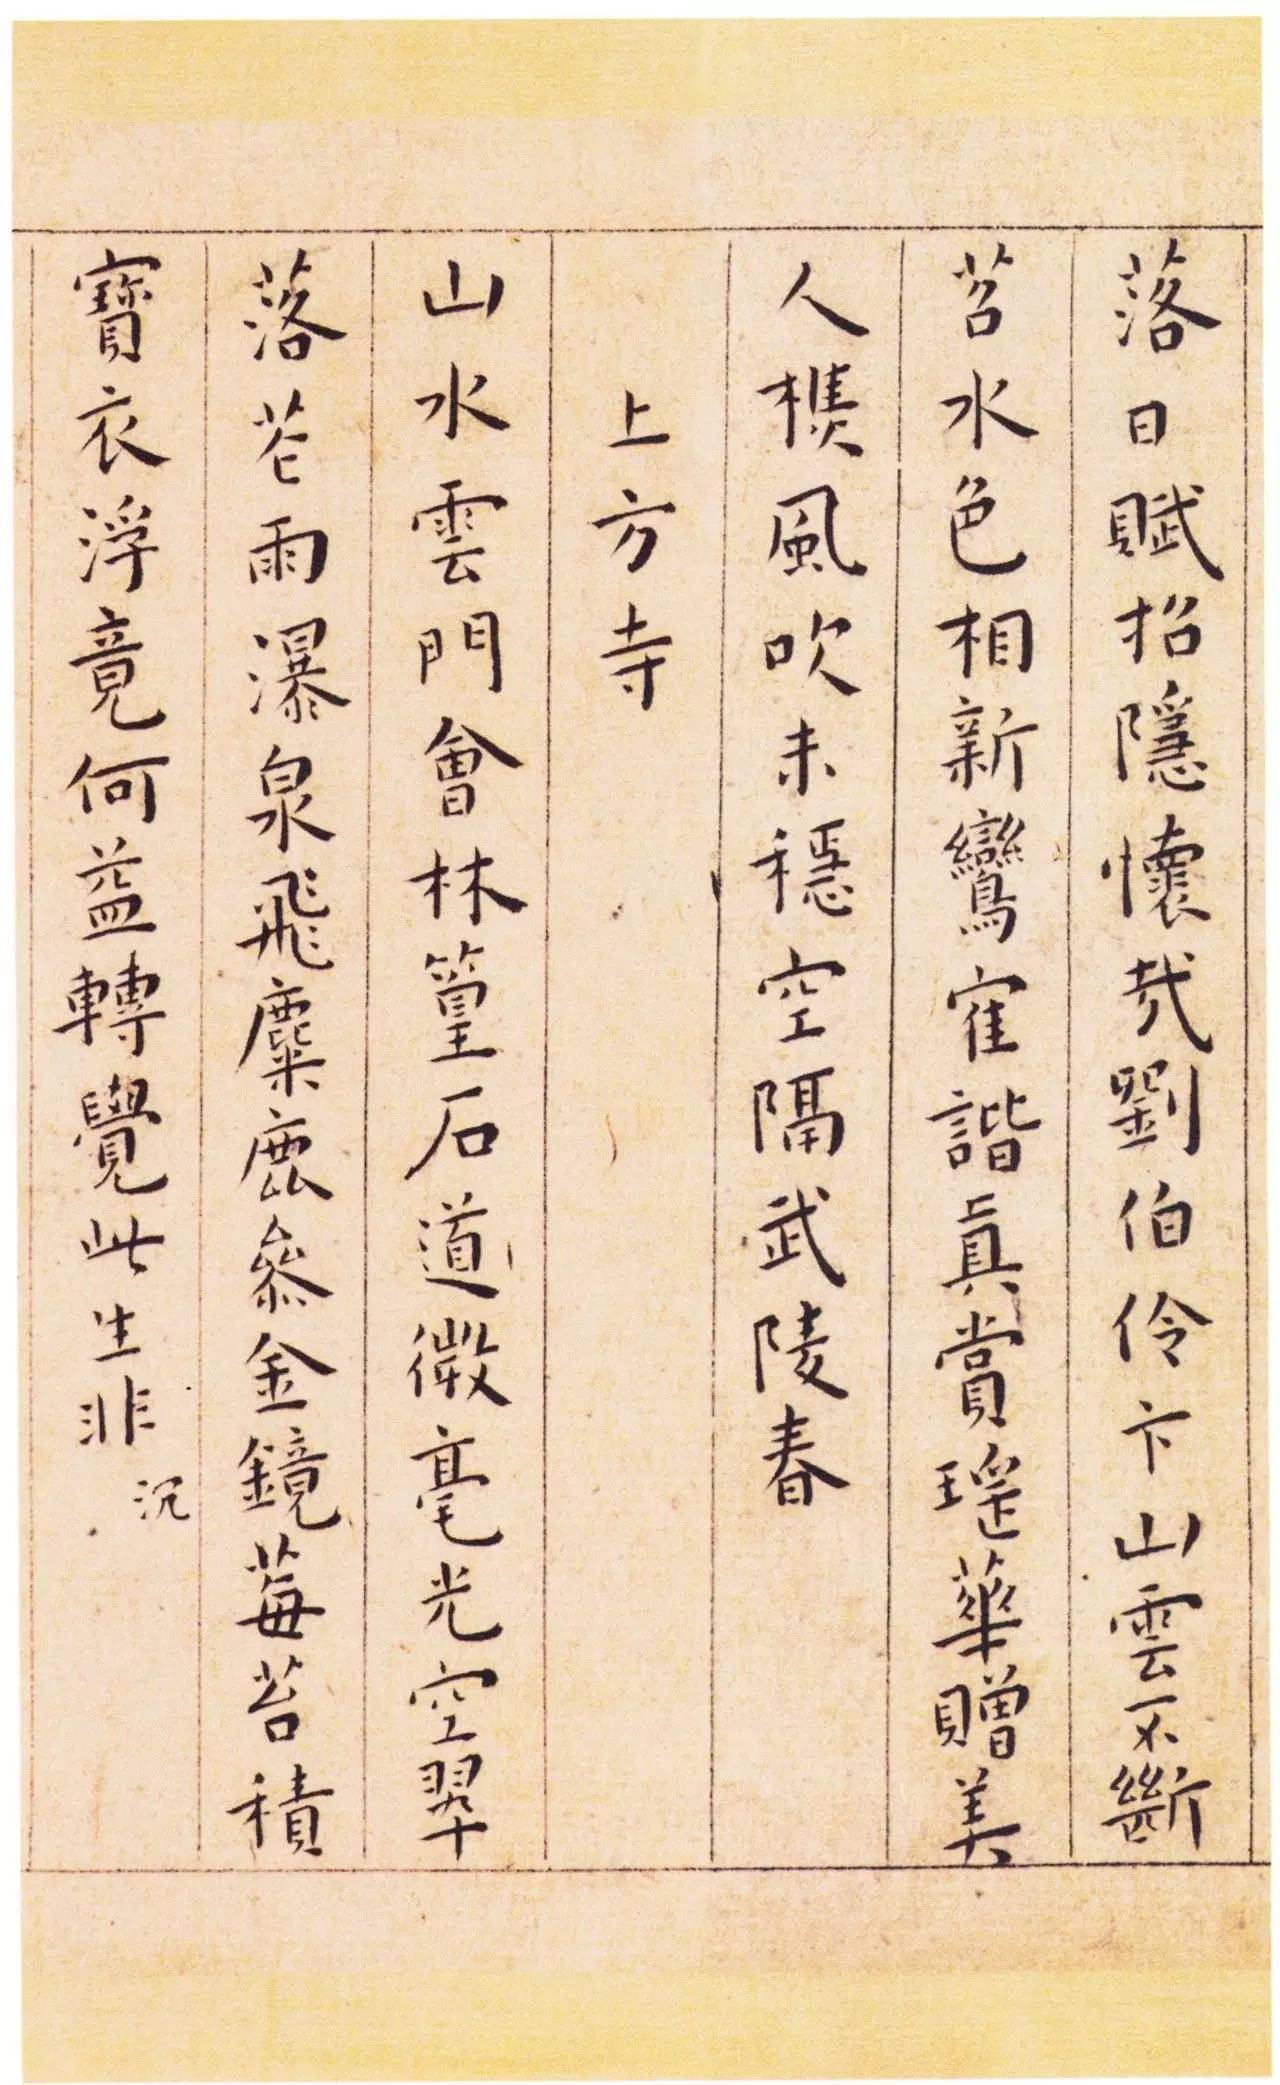 落日賦招隱懷哉劉伯伶卞山雲不斷
苕水色相新鸞寉諧真賞瑤華贈美
人樵風吹未穩空隔武陵春
上方寺
山水雲門會林篁石道微毫光空翠
落花雨瀑泉飛麋鹿參金鏡莓苔積
寶衣浮竟何益轉覺此生非
沉